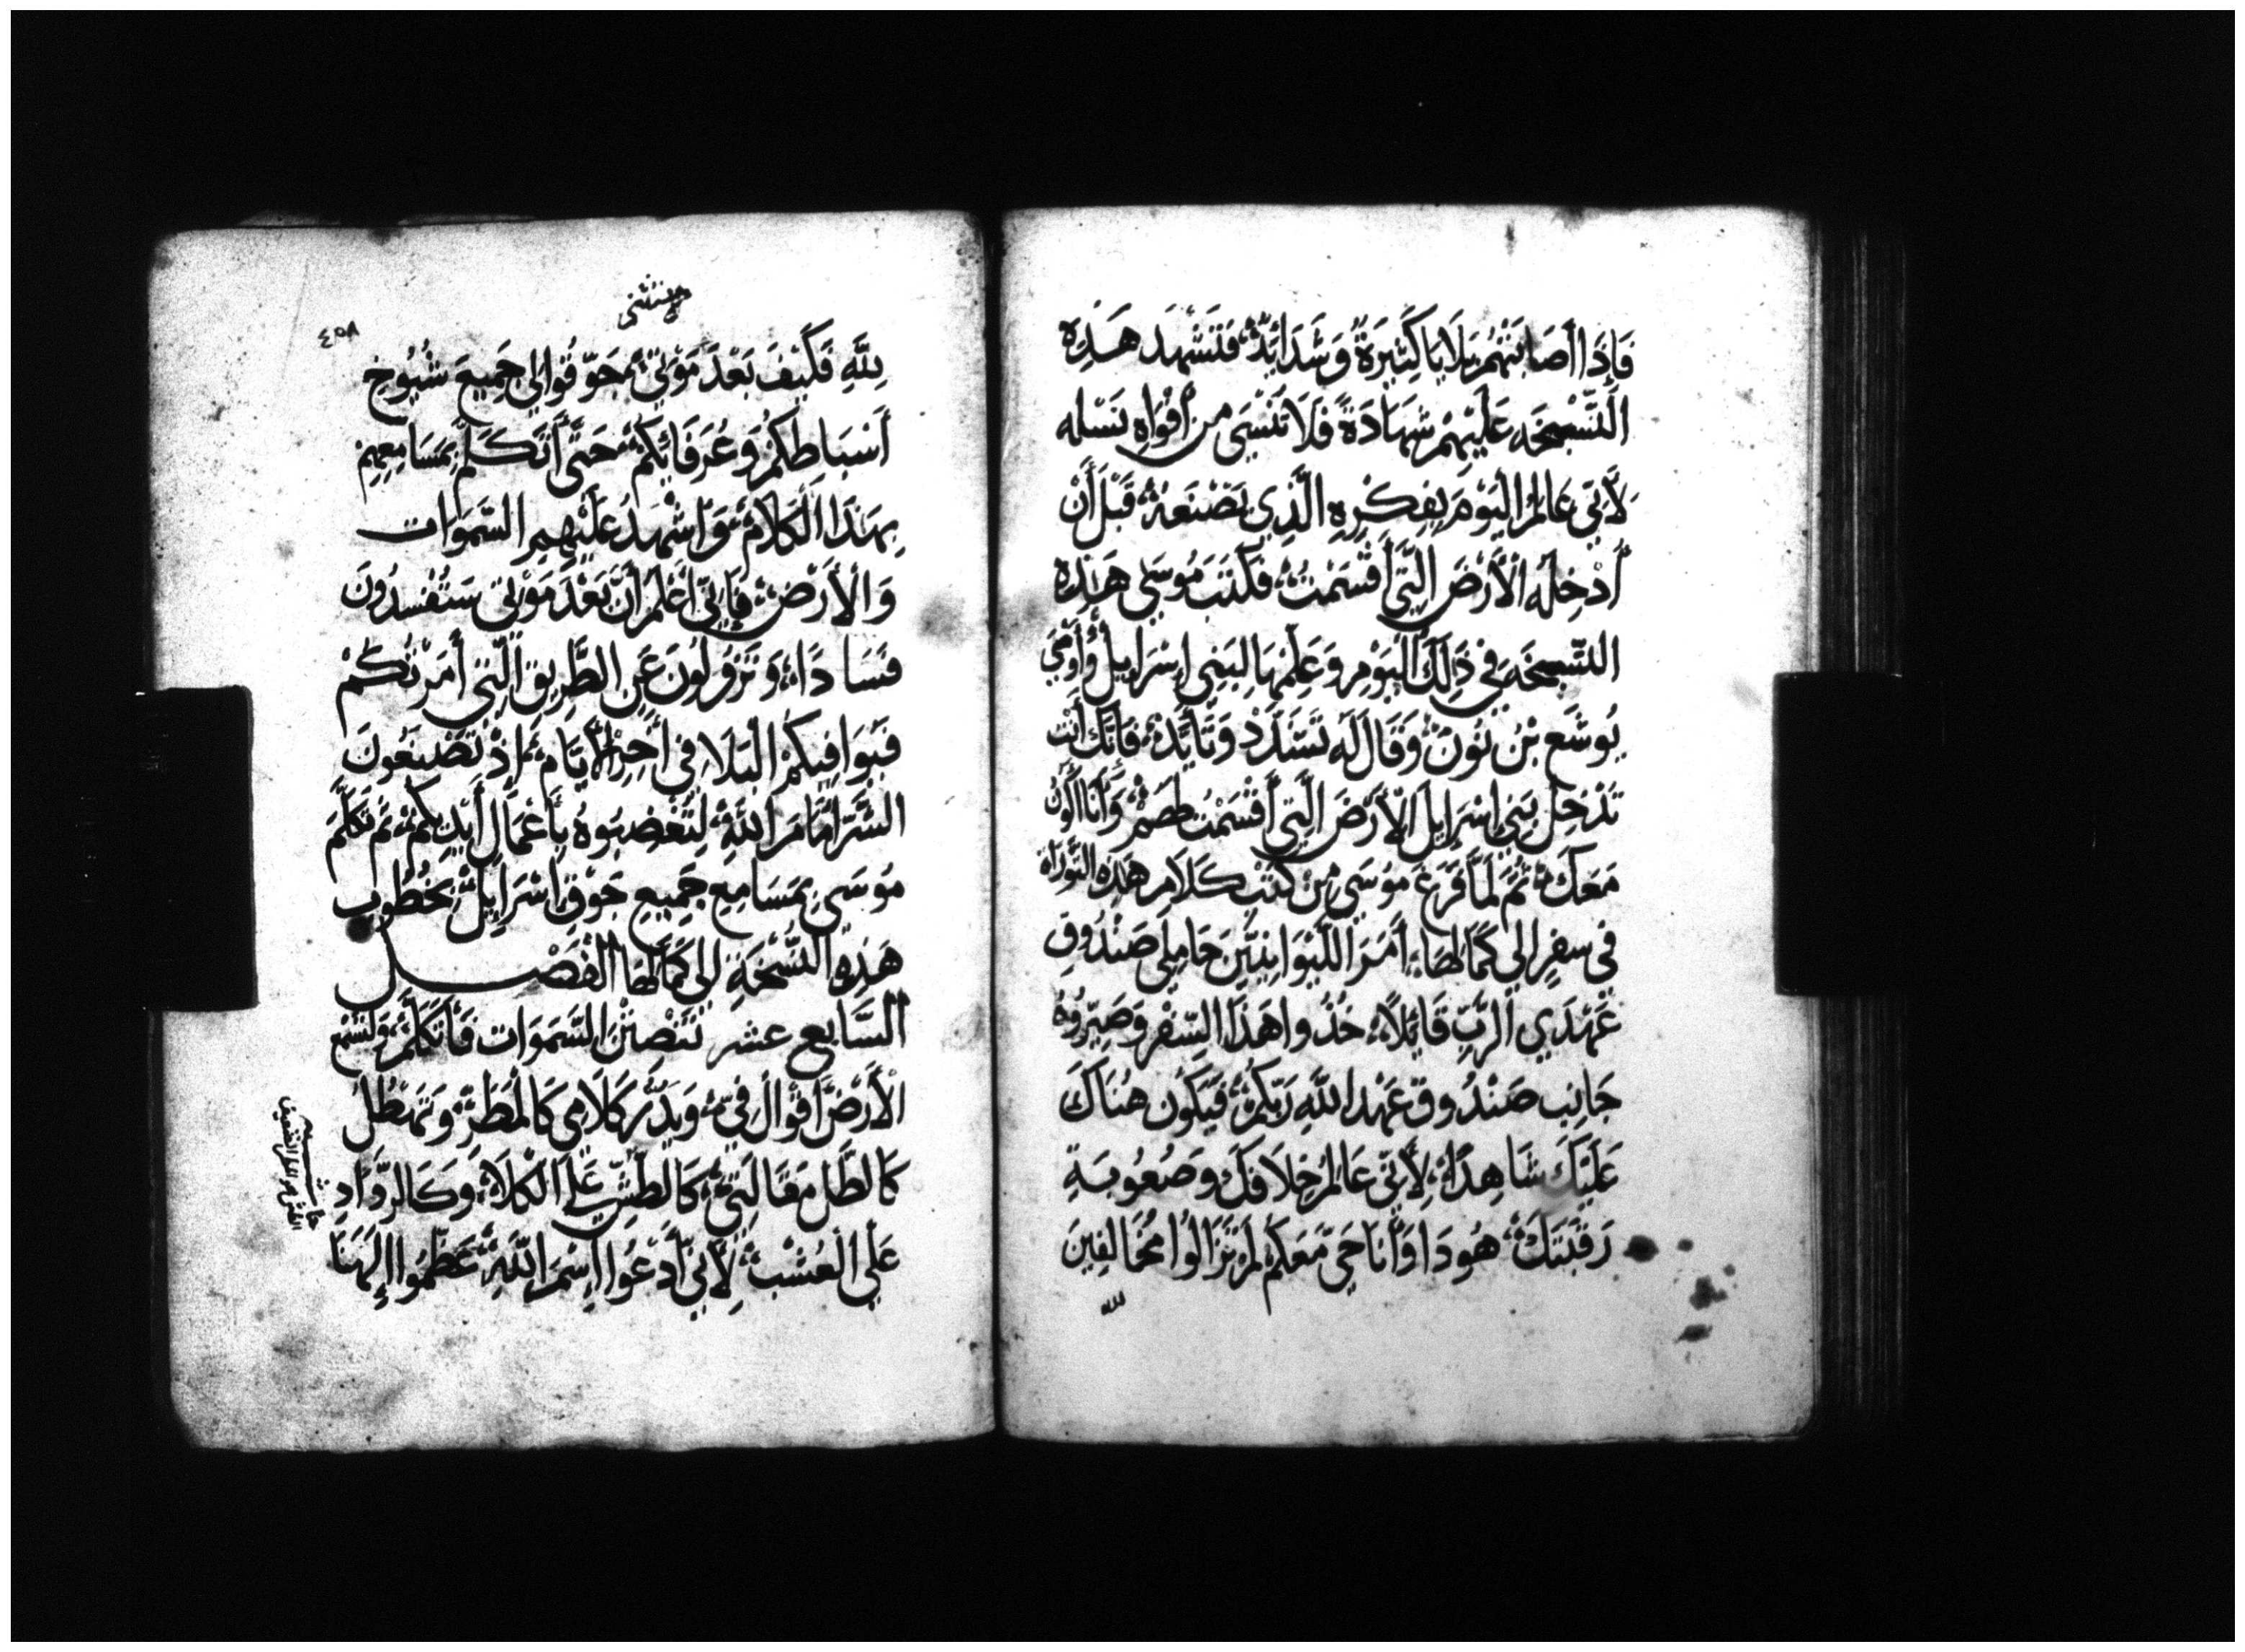 فَإِذَا أَصَابَتْهُمْ بَلَايَا كَثِيرَةٌ وَشَدَائِدٌ فَتَشْهَد هَذِهِ
النُّسْخَه عَلَيْهِمْ شَهَادَةً فَلَا تَنْسَى من أَفْوَاهِ نَسْله
لِأَنِّي عَالِمُ الْيَوْمَ بِفِكْرِهِ الَّذِي يَصْنَعَهُ قَبْلَ أَنْ
أُدْخِلَه الْأَرْضَ الَّتِي أَقْسَمْتُ فَكَتَبَ مُوسَى هَذِه
النُّسْخَه فِي ذَلِكَ الْيَوْمِ وَعَلِمَهَا لِبَنِي إِسْرَايِل وَأَوْصَى
يُوشَع بْن نُونَ وَقَالَ لَه تَشَدَّدْ وَتَأَيَّدْ فَإِنَّكَ أَنْت
تُدْخِل بَنِي إِسْرَايِل الْأَرْضَ الَّتِي أَقْسَمْت لهم وَأَنَا أَكُون
مَعَكَ ثُمَّ لَمَّا فَرَغَ مُوسَى مِن كَتْب كَلَام هَذِهِ التَّوْرَاة
فِي سِفرٍ إِلَى كَمَالِهَا أَمَرَ اللِّيْوَانِيِّينَ حَامِلِي صَنْدُوق
عَهْدِ الرَّبِّ قَائِلًا خُذُوا هَذَا السِّفْر وَصَيِّرُوهُ
جَانِب صَنْدُوق عَهْد اللَّهِ رَبِّكُمْ فَيَكُون هُنَاكَ
عَلَيْكَ شَاهِدًا لِأَنِّي عَالِمُ خِلَافَكَ وصُعُوبَةِ
رَقَبَتِكَ هُودَا وَأَنَا حَيّ مَعَكُمْ لَمْ تَزَالُوا مُخَالِفِينَ
لله
٤٥٨
لِلَّهِ فَكَيْفَ بَعْدَ مَوْتِي تُجَوِّقُوا لِي جَمِيعَ شُيُوخِ
أَسْبَاطِكُمْ وَعُرَفَائِكُمْ حَتَّى أَتَكَلَّم بِمَسَامِعِهِمْ
بِهَذَا الْكَلَامْ وَاشْهِدُ عَلَيْهِم السَّمَوَات
وَالْأَرْض فَإِنِّي أَعْلَم أَنْ بَعْدَ مَوْتِي سَتُفْسِدُونَ
فَسَادًا وَتَزُولُونَ عَنِ الطَّرِيق الَّتِي أَمَرْتُكُمْ
فَيُوَافِيكُمْ الْبَلَا فِي أَخِرِ الْأَيَّام إِذْ تَصْنَعُونَ
الشَّرَّ أَمَامَ اللَّهِ لِتُغْضِبُوهُ بِأَعْمَالِ أَيْدِيكُمْ ثُمَّ تَكَلَّمَ
مُوسَى بِمَسَامِعِ جَمِيعِ جَوْقِ إِسْرَايِيل بِخُطُوبِ
هَذِهِ النُّسْخَةِ إِلَى كَمَالِهَا الْفَصْل
السَّابِع عشر تَنْصِتْنَ السَّمَوَات فَأَتَكَلَّمَ وَلتَسْمَع
الْأَرْضَ أَقْوَالَ فِيَّ وَيَدِرّ كَلَامِي كَالْمَطَرْ وَتَهْطُل
كَالطَّل مَقَالَتِي كَالطَّشِّ عَلَى الْكَلَاءِ وَكَالرَّذَاذِ
عَلَى الْعُشْبِ لِأَنِّي أَدْعُوا إِسْمَ اللَّهِ عَظِّمُوا إِلَهَنَا